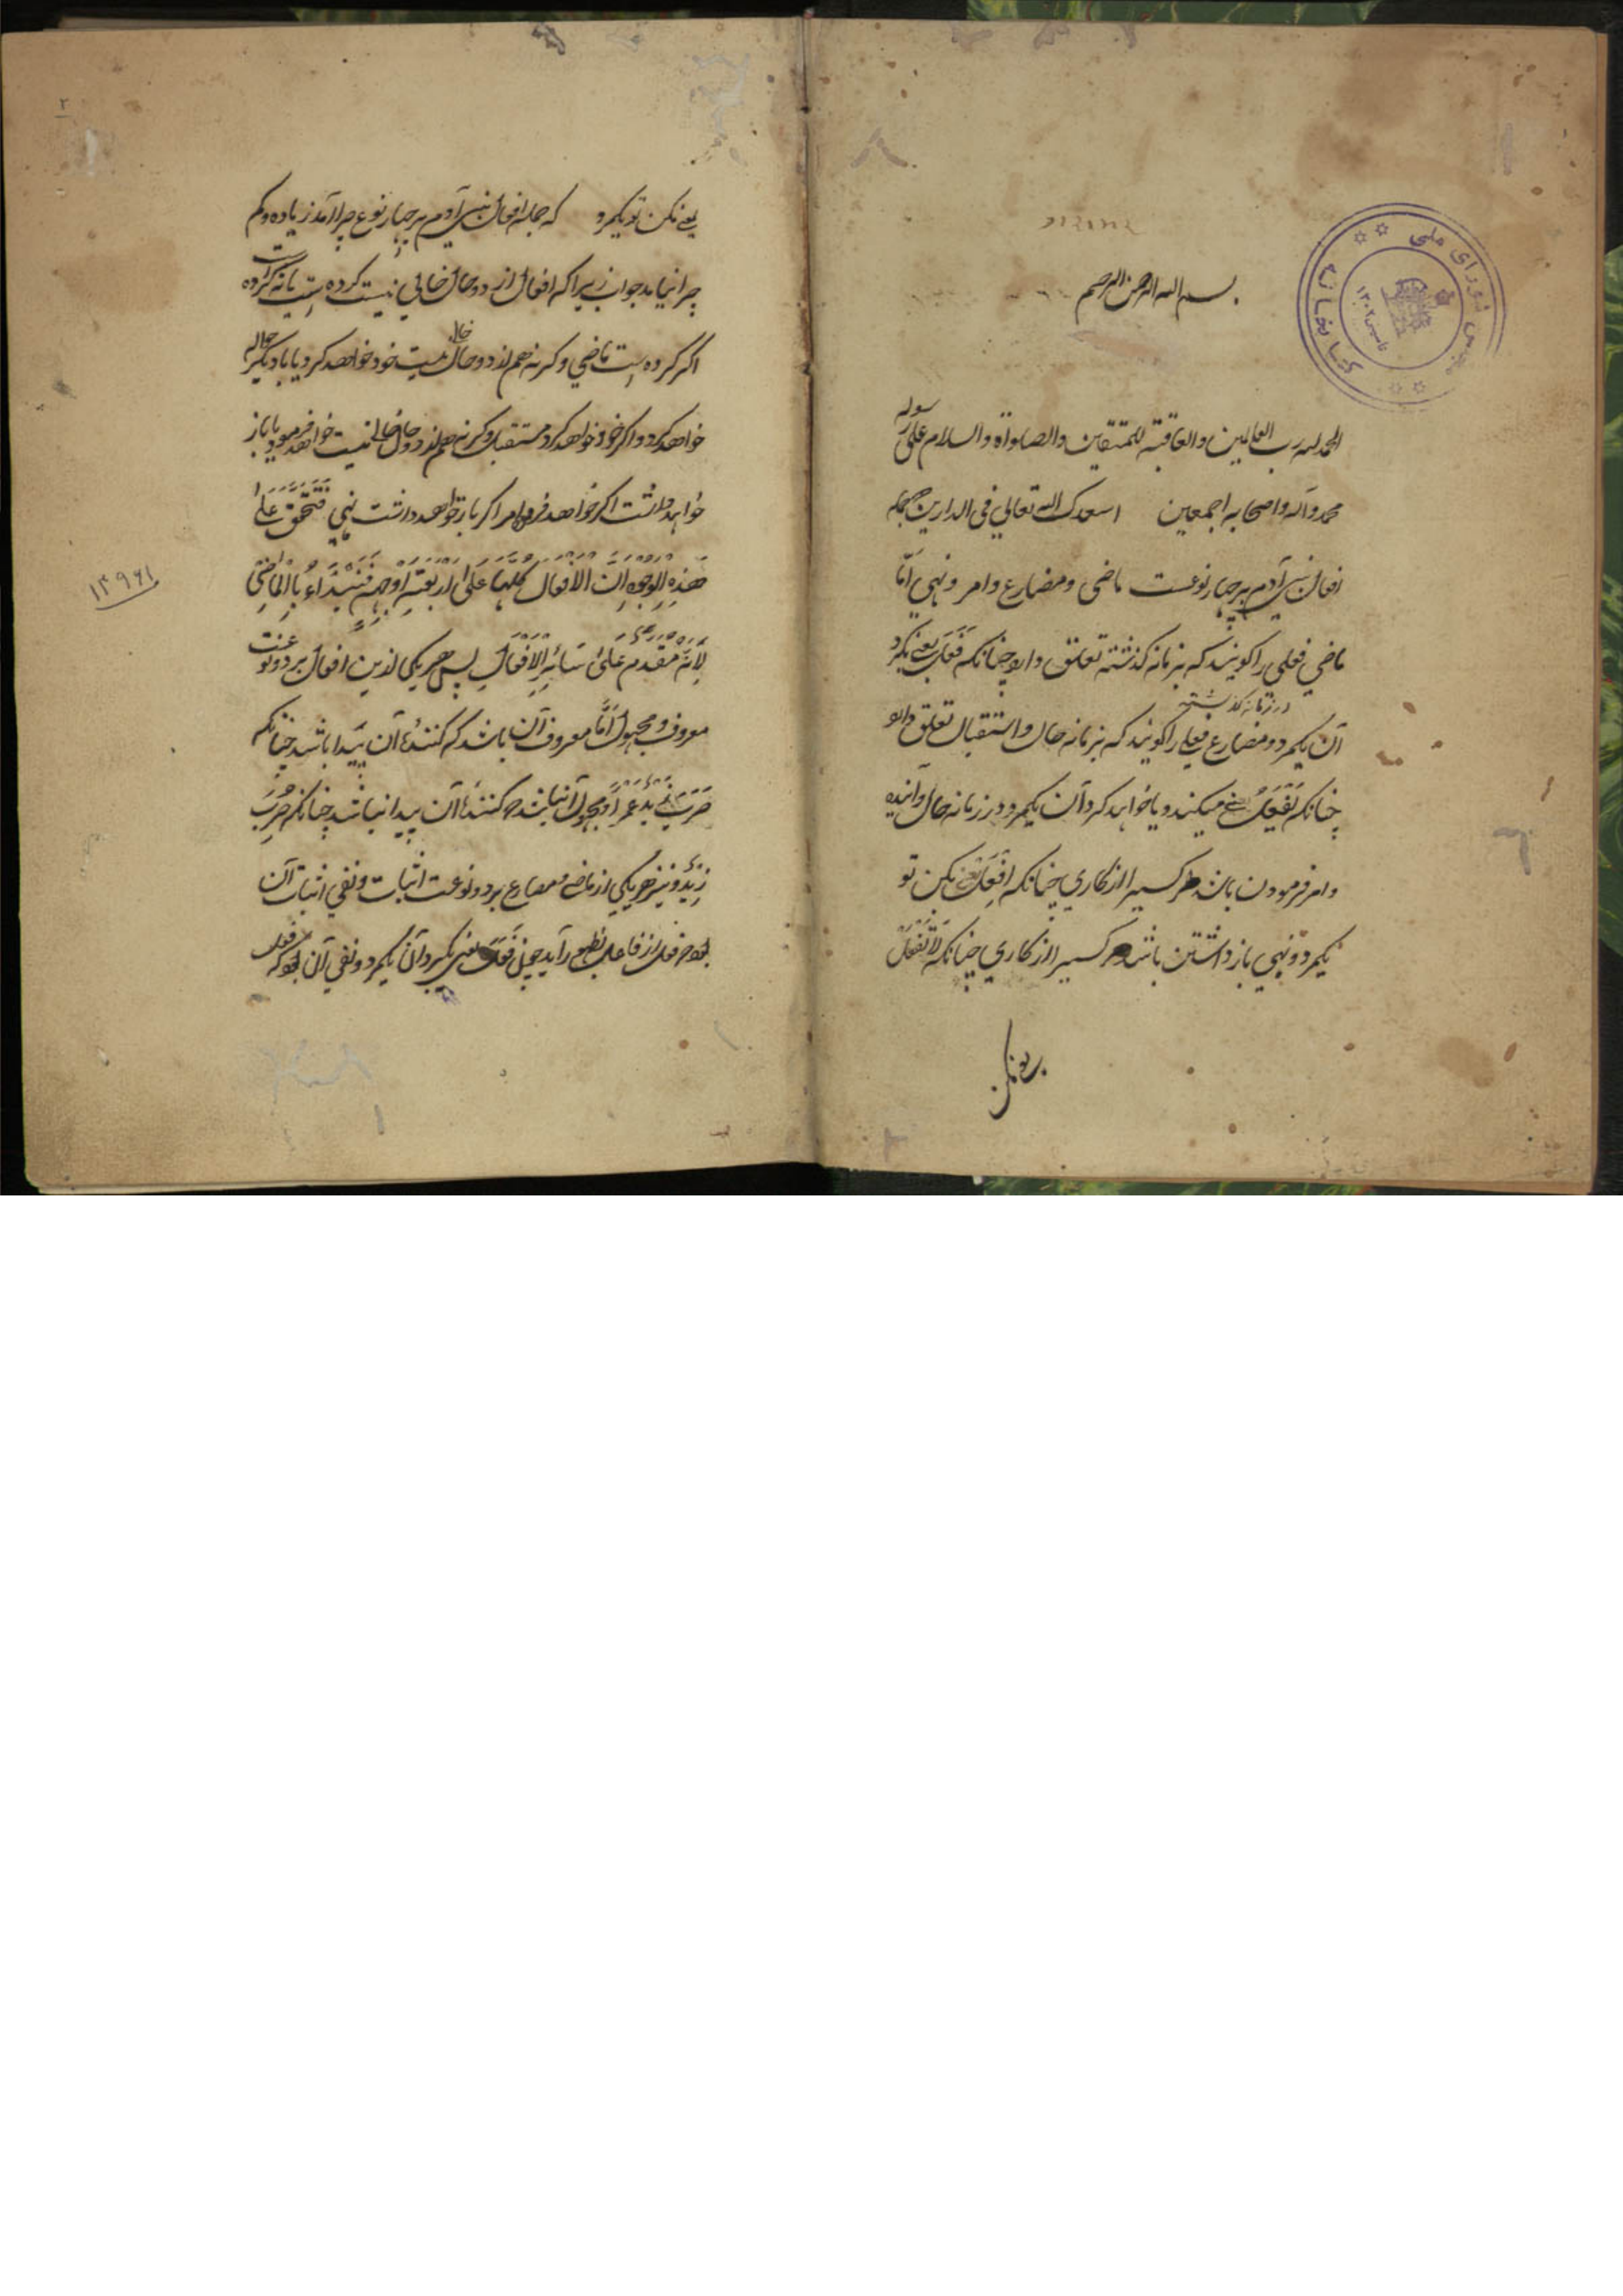 بسم الله الرحمن الرحیم
الحمد لله رب العالمین والعاقبة للمتقین والصلواة والسلام علی رسوله
محمد وآله واصحابه اجمعین اسعدک الله تعالی فی الدارین جمله
افعال بنی آدم بر چهار نوعست ماضی ومضارع وامر ونهی اما
ماضی فعلی را کویند که بزمانه کذشته تعلق دارد چنانکه فَعَلَ یعنی بکرد
در زمانه کذشته
آن یکمرد ومضارع فعلی را کویند که بزمانه حال واستقبال تعلق دارد
چنانکه یَفْعَلُ یعنی میکند ویا خواهد کرد آن یکمرد در زمانه حال وآینده
وامر فرمودن باشد مر کسیرا از کاری چنانکه اِفْعَلْ یعنی بکن تو
یکمرد ونهی بازداشتن باشد مر کسیرا از کاری چنانکه لَا تَفْعَلْ
یعنی مکن
کتابخانه مجلس شورای ملی
۱۳۰۲
۲
یعنی مکن تو یکمرد که جمله افعال بنی آدم بر چهار نوع چرا آمد زیاده وکم
چرا نیامد جواب زیرا که افعال از دو حال خالی نیست کرده است یا نه کرده است
اکر کرده است ماضی وکرنه هم از دو حال خالی نیست خود خواهد کرد یا با دیکر حاله
خواهد کرد واکر خود خواهد کرد مستقبل وکرنه هم از دو حال خالی نیست خواهد فرمود یا باز
خواهد داشت اکر خواهد فرمود امر اکر باز خواهد داشت نهی فَتَحَقَّقَ عَلَیٰ
هَذِهِ الْوُجُوهِ اِنَّ الْاَفْعَالَ کُلَّهَا عَلَی اَرْبَعَةِ اَوْجُهٍ فَنَبْتَدَاءُ بِالْمَاضِی
لِاَنَّهُ مُقَدَّمٌ عَلَیٰ سَائِرِ الْاَفْعَالِ پس هر یکی ازین افعال بر دو نوعست
معروف ومجهول اَمَّا معروف آن باشد که کنندهٔ آن پیدا باشد چنانکه
ضَرَبَ زَیْدٌ عَمْرًا ومجهول آنباشد که کنندهٔ آن پیدا نباشد چنانکه ضُرِبَ
زَیْدٌ ونیز هر یکی از ماضی ومضارع بر دو نوعست اثبات ونفی اثبات آن
بود که فعل از فاعل بظهور آید چون فَعَلَ یعنی بکرد آن یکمرد ونفی آن بود که فعل
۱۳۹۶۱